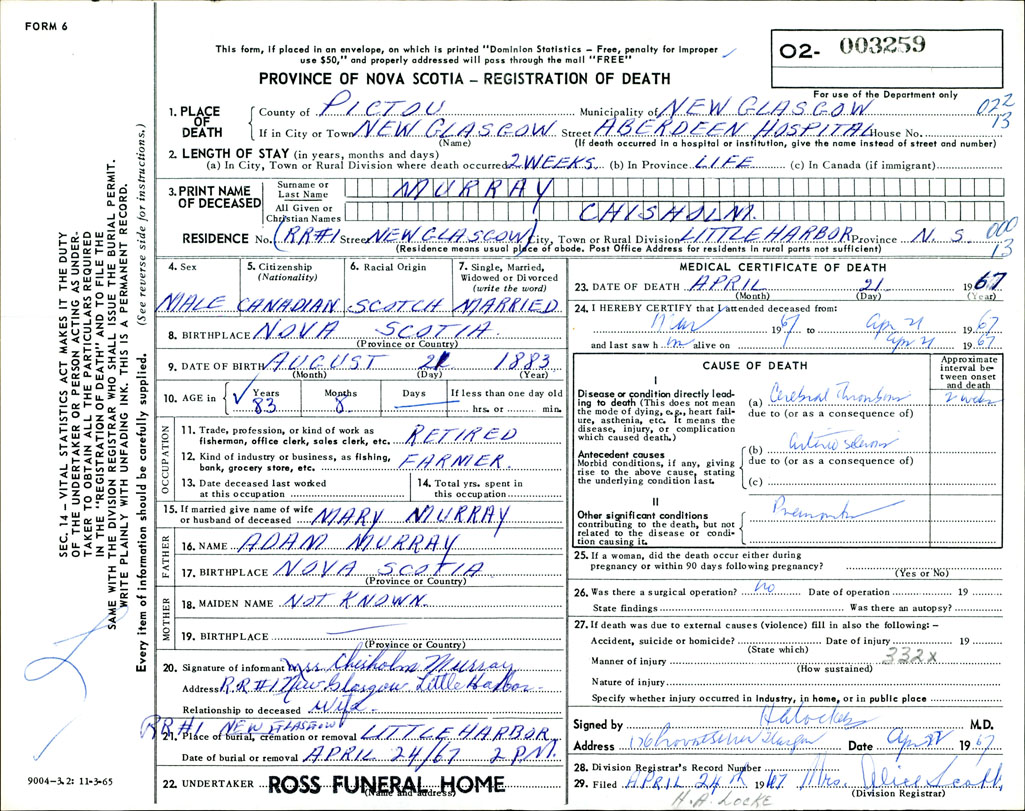 FORM 6
This form, if placed in an envelope, on which is printed "Dominion Statistics – Free, penalty for improper
use $50," and properly addressed will pass through the mail "FREE"
02- 003259
PROVINCE OF NOVA SCOTIA – REGISTRATION OF DEATH
For use of the Department only
1. PLACE OF DEATH
County of PICTOU Municipality of NEW GLASGOW 022
If in City or Town NEW GLASGOW Street ABERDEEN HOSPITAL House No. 13
(Name) (If death occurred in a hospital or institution, give the name instead of street and number)
2. LENGTH OF STAY (in years, months and days)
(a) In City, Town or Rural Division where death occurred 2 WEEKS (b) In Province LIFE (c) In Canada (if immigrant)
3. PRINT NAME OF DECEASED
Surname or Last Name MURRAY
All Given or Christian Names CHISHOLM
RESIDENCE No. (RR#1 Street NEW GLASGOW) City, Town or Rural Division LITTLE HARBOR Province N. S. 000
(Residence means usual place of abode. Post Office Address for residents in rural parts not sufficient) 13
4. Sex 5. Citizenship (Nationality) 6. Racial Origin 7. Single, Married, Widowed or Divorced (write the word)
MALE CANADIAN SCOTCH MARRIED
8. BIRTHPLACE NOVA SCOTIA
(Province or Country)
9. DATE OF BIRTH AUGUST 21 1883
(Month) (Day) (Year)
10. AGE in Years Months Days If less than one day old
83 8 hrs. or min.
OCCUPATION
11. Trade, profession, or kind of work as fisherman, office clerk, sales clerk, etc. RETIRED
12. Kind of industry or business, as fishing, bank, grocery store, etc. FARMER
13. Date deceased last worked at this occupation
14. Total yrs. spent in this occupation
15. If married give name of wife or husband of deceased MARY MURRAY
FATHER
16. NAME ADAM MURRAY
17. BIRTHPLACE NOVA SCOTIA
(Province or Country)
MOTHER
18. MAIDEN NAME NOT KNOWN
19. BIRTHPLACE
(Province or Country)
20. Signature of informant Mrs Chisholm Murray
Address R.R #1 New Glasgow Little Harbor
Relationship to deceased Wife
RR#1 NEW GLASGOW
21. Place of burial, cremation or removal LITTLE HARBOR
Date of burial or removal APRIL 24/67 2 P.M.
22. UNDERTAKER ROSS FUNERAL HOME
(Name and address)
MEDICAL CERTIFICATE OF DEATH
23. DATE OF DEATH APRIL 21 1967
(Month) (Day) (Year)
24. I HEREBY CERTIFY that I attended deceased from:
1967 to Apr 21 1967
and last saw him alive on Apr 21 1967
CAUSE OF DEATH
Approximate interval between onset and death
I
Disease or condition directly leading to death (This does not mean the mode of dying, e.g., heart failure, asthenia, etc. It means the disease, injury, or complication which caused death.)
(a) Cerebral Thrombosis 2 weeks
due to (or as a consequence of)
Antecedent causes
Morbid conditions, if any, giving rise to the above cause, stating the underlying condition last.
(b) arteriosclerosis
due to (or as a consequence of)
(c)
II
Other significant conditions contributing to the death, but not related to the disease or condition causing it.
25. If a woman, did the death occur either during pregnancy or within 90 days following pregnancy?
(Yes or No)
26. Was there a surgical operation? no Date of operation 19
State findings Was there an autopsy?
27. If death was due to external causes (violence) fill in also the following: –
Accident, suicide or homicide? Date of injury 19
(State which) 332X
Manner of injury
(How sustained)
Nature of injury
Specify whether injury occurred in Industry, in home, or in public place
Signed by HA Locke M.D.
Address Glasgow Date 1967
28. Division Registrar's Record Number
29. Filed APRIL 24th 1967 Mrs. Alice Scott
(Division Registrar)
H. A. LOCKE
SEC. 14 – VITAL STATISTICS ACT MAKES IT THE DUTY
OF THE UNDERTAKER OR PERSON ACTING AS UNDER-
TAKER TO OBTAIN ALL THE PARTICULARS REQUIRED
IN THE "REGISTRATION OF DEATH" AND TO FILE THE
SAME WITH THE DIVISION REGISTRAR WHO SHALL ISSUE THE BURIAL PERMIT.
WRITE PLAINLY WITH UNFADING INK. THIS IS A PERMANENT RECORD.
Every item of information should be carefully supplied. (See reverse side for instructions.)
9004-3.2: 11-3-65